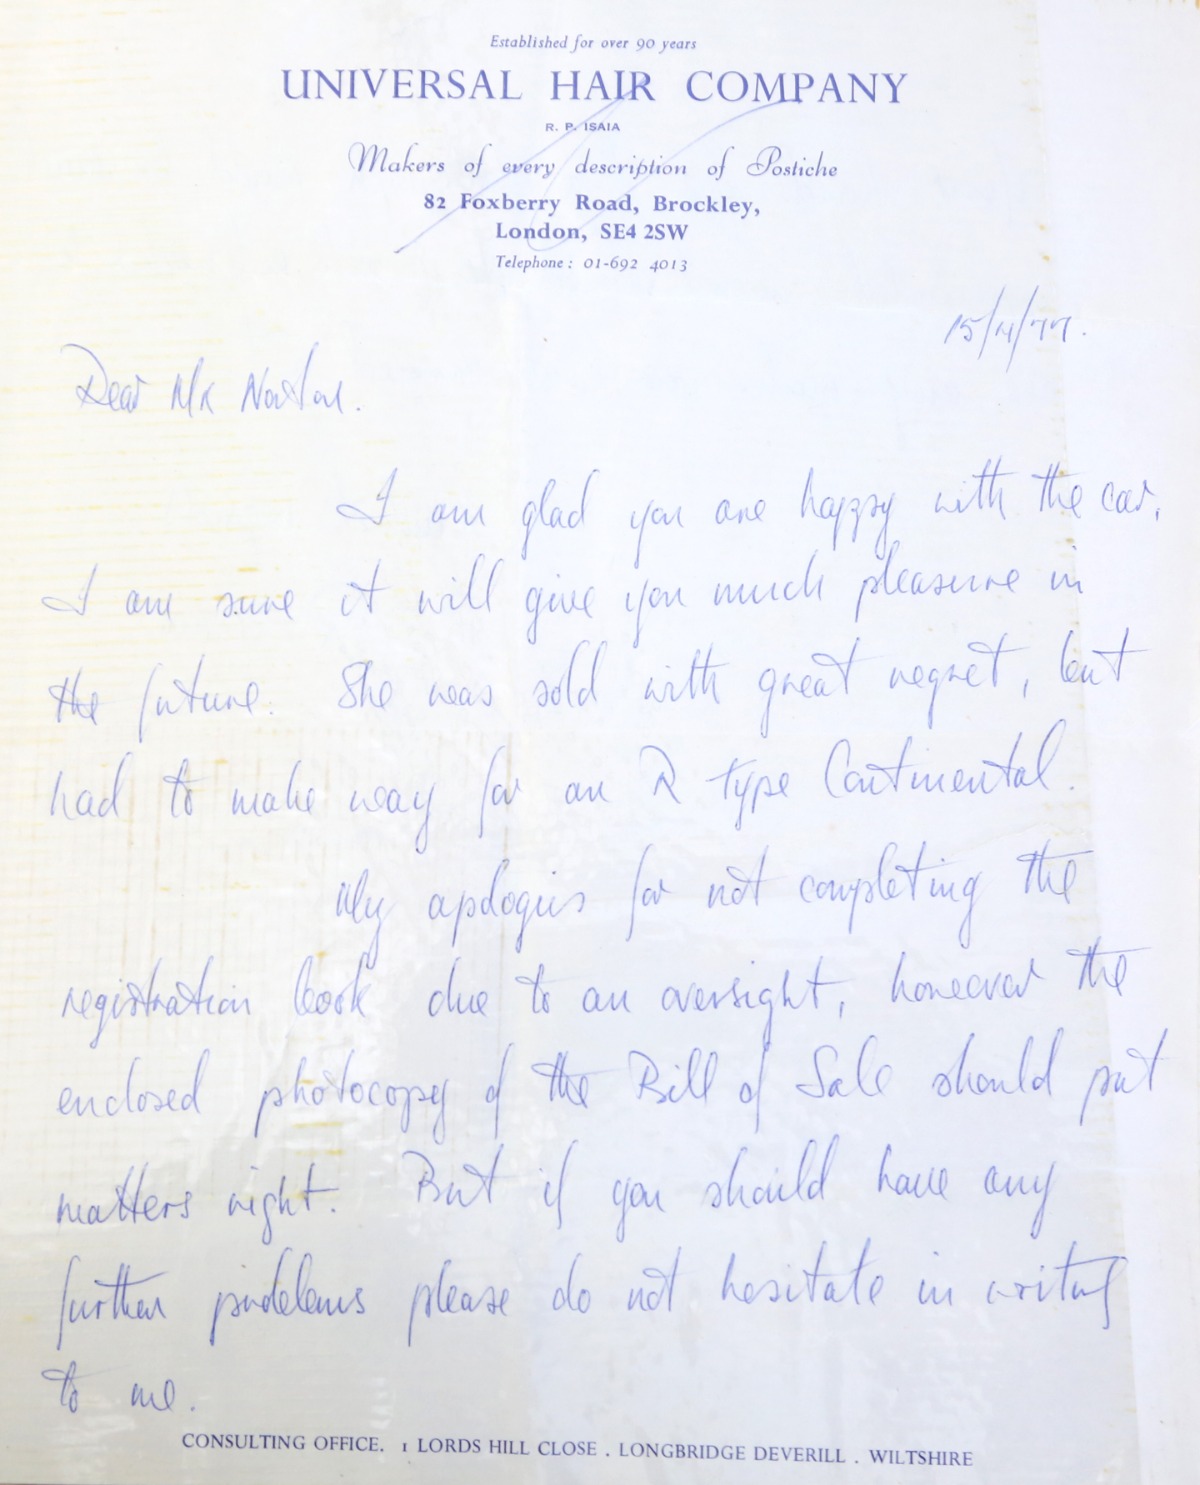 Established for over 90 years
UNIVERSAL HAIR COMPANY
R. P. ISAIA
Makers of every description of Postiche
82 Foxberry Road, Brockley,
London, SE4 2SW
Telephone : 01-692 4013
15/4/77.
Dear Mr Norton.
I am glad you are happy with the car,
I am sure it will give you much pleasure in
the future. She was sold with great regret, but
had to make way for an R type Continental.
My apologies for not completing the
registration book due to an oversight, however the
enclosed photocopy of the Bill of Sale should put
matters right. But if you should have any
further problems please do not hesitate in writing
to me.
CONSULTING OFFICE. 1 LORDS HILL CLOSE . LONGBRIDGE DEVERILL . WILTSHIRE